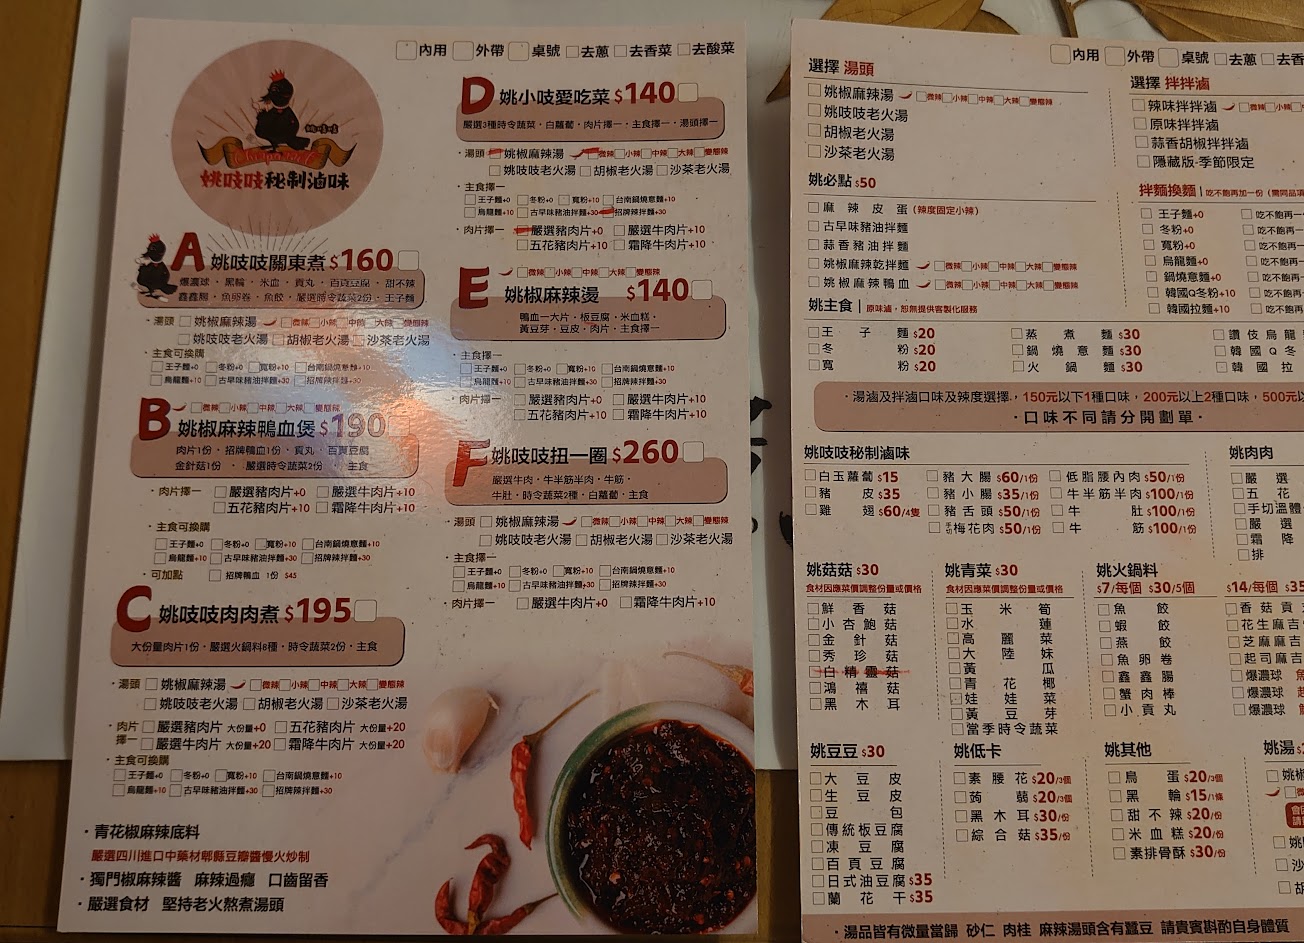 內用 外帶 桌號 去蔥 去香菜 去酸菜
姚吱吱秘制滷味
A 姚吱吱關東煮 $160
爆濃球・黑輪・米血・貢丸・百頁豆腐・甜不辣
鑫鑫腸・魚卵卷・魚餃・嚴選時令蔬菜2份・王子麵
・湯頭 姚椒麻辣湯 微辣 小辣 中辣 大辣 變態辣
姚吱吱老火湯 胡椒老火湯 沙茶老火湯
・主食可換購
王子麵+0 冬粉+0 寬粉+10 台南鍋燒意麵+10
烏龍麵+10 古早味豬油拌麵+30 招牌辣拌麵+30
B 微辣 小辣 中辣 大辣 變態辣
姚椒麻辣鴨血煲 $190
肉片1份・招牌鴨血1份・貢丸・百頁豆腐
金針菇1份・嚴選時令蔬菜2份・主食
・肉片擇一 嚴選豬肉片+0 嚴選牛肉片+10
五花豬肉片+10 霜降牛肉片+10
・主食可換購
王子麵+0 冬粉+0 寬粉+10 台南鍋燒意麵+10
烏龍麵+10 古早味豬油拌麵+30 招牌辣拌麵+30
・可加點 招牌鴨血 1份 $45
C 姚吱吱肉肉煮 $195
大份量肉片1份・嚴選火鍋料8種・時令蔬菜2份・主食
・湯頭 姚椒麻辣湯 微辣 小辣 中辣 大辣 變態辣
姚吱吱老火湯 胡椒老火湯 沙茶老火湯
・肉片擇一 嚴選豬肉片 大份量+0 五花豬肉片 大份量+20
嚴選牛肉片 大份量+20 霜降牛肉片 大份量+20
・主食可換購
王子麵+0 冬粉+0 寬粉+10 台南鍋燒意麵+10
烏龍麵+10 古早味豬油拌麵+30 招牌辣拌麵+30
・青花椒麻辣底料
嚴選四川進口中藥材郫縣豆瓣醬慢火炒制
・獨門椒麻辣醬 麻辣過癮 口齒留香
・嚴選食材 堅持老火熬煮湯頭
D 姚小吱愛吃菜 $140
嚴選3種時令蔬菜・白蘿蔔・肉片擇一・主食擇一・湯頭擇一
・湯頭 姚椒麻辣湯 微辣 小辣 中辣 大辣 變態辣
姚吱吱老火湯 胡椒老火湯 沙茶老火湯
・主食擇一
王子麵+0 冬粉+0 寬粉+10 台南鍋燒意麵+10
烏龍麵+10 古早味豬油拌麵+30 招牌辣拌麵+30
・肉片擇一 嚴選豬肉片+0 嚴選牛肉片+10
五花豬肉片+10 霜降牛肉片+10
E 微辣 小辣 中辣 大辣 變態辣
姚椒麻辣燙 $140
鴨血一大片・板豆腐・米血糕・
黃豆芽・豆皮・肉片・主食擇一
・主食擇一
王子麵+0 冬粉+0 寬粉+10 台南鍋燒意麵+10
烏龍麵+10 古早味豬油拌麵+30 招牌辣拌麵+30
・肉片擇一 嚴選豬肉片+0 嚴選牛肉片+10
五花豬肉片+10 霜降牛肉片+10
F 姚吱吱扭一圈 $260
嚴選牛肉・牛半筋半肉・牛筋・
牛肚・時令蔬菜2種・白蘿蔔・主食
・湯頭 姚椒麻辣湯 微辣 小辣 中辣 大辣 變態辣
姚吱吱老火湯 胡椒老火湯 沙茶老火湯
・主食擇一
王子麵+0 冬粉+0 寬粉+10 台南鍋燒意麵+10
烏龍麵+10 古早味豬油拌麵+30 招牌辣拌麵+30
・肉片擇一 嚴選牛肉片+0 霜降牛肉片+10
內用 外帶 桌號 去蔥 去香
選擇 湯頭
姚椒麻辣湯 微辣 小辣 中辣 大辣 變態辣
姚吱吱老火湯
胡椒老火湯
沙茶老火湯
選擇 拌拌滷
辣味拌拌滷 微辣 小辣
原味拌拌滷
蒜香胡椒拌拌滷
隱藏版-季節限定
姚必點 $50
麻辣皮蛋(辣度固定小辣)
古早味豬油拌麵
蒜香豬油拌麵
姚椒麻辣乾拌麵 微辣 小辣 中辣 大辣 變態辣
姚椒麻辣鴨血 微辣 小辣 中辣 大辣 變態辣
拌麵換麵 | 吃不飽再加一份(需同品項
王子麵+0 吃不飽再一
冬粉+0 吃不飽再一
寬粉+0 吃不飽再一
烏龍麵+0 吃不飽再一
鍋燒意麵+0 吃不飽再一
韓國Q冬粉+10 吃不飽再一
韓國拉麵+10 吃不飽再一
姚主食 | 原味滷,恕無提供客製化服務
王子麵 $20 蒸煮麵 $30 讚伎烏龍
冬粉 $20 鍋燒意麵 $30 韓國Q冬
寬粉 $20 火鍋麵 $30 韓國拉
・湯滷及拌滷口味及辣度選擇・150元以下1種口味,200元以上2種口味,500元以
・口味不同請分開劃單・
姚吱吱秘制滷味
白玉蘿蔔 $15 豬大腸 $60/1份 低脂腰內肉 $50/1份
豬皮 $35 豬小腸 $35/1份 牛半筋半肉 $100/1份
雞翅 $60/4隻 豬舌頭 $50/1份 牛肚 $100/1份
梅花肉 $50/1份 牛筋 $100/1份
姚肉肉
嚴選
五花
手切溫體
嚴選
霜降
排
姚菇菇 $30
食材因應菜價調整份量或價格
鮮香菇
小杏鮑菇
金針菇
秀珍菇
白精靈菇
鴻禧菇
黑木耳
姚青菜 $30
食材因應菜價調整份量或價格
玉米筍
水蓮
高麗菜
大陸妹
黃瓜
青花椰
娃娃菜
黃豆芽
當季時令蔬菜
姚火鍋料
$7/每個 $30/5個
魚餃
蝦餃
燕餃
魚卵卷
鑫鑫腸
蟹肉棒
小貢丸
$14/每個 $35
香菇貢
花生麻吉
芝麻麻吉
起司麻吉
爆濃球
爆濃球
爆濃球
姚豆豆 $30
大豆皮
生豆皮
豆包
傳統板豆腐
凍豆腐
百頁豆腐
日式油豆腐 $35
蘭花干 $35
姚低卡
素腰花 $20/3個
蒟蒻 $20/3個
黑木耳 $30/份
綜合菇 $35/份
姚其他
鳥蛋 $20/3個
黑輪 $15/1條
甜不辣 $20/份
米血糕 $20/份
素排骨酥 $30/份
姚湯
姚椒
沙
胡
・湯品皆有微量當歸 砂仁 肉桂 麻辣湯頭含有蠶豆 請貴賓斟酌自身體質